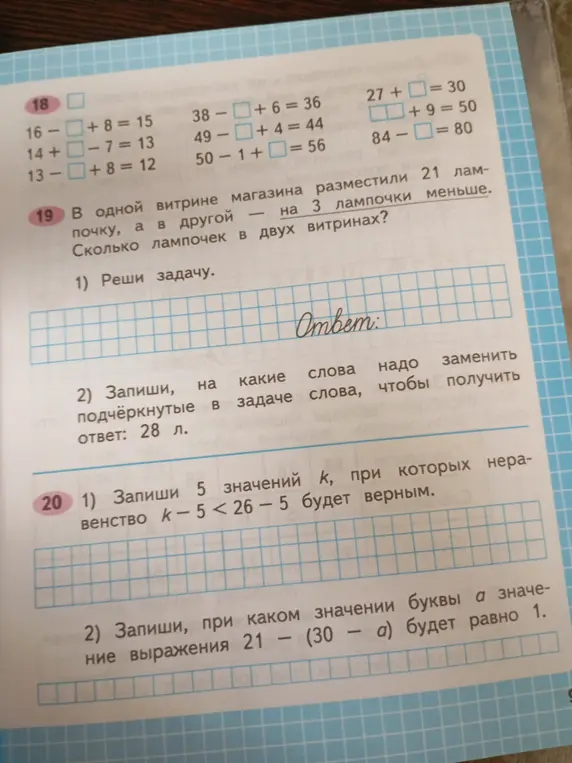 18 □
16 − □ + 8 = 15
14 + □ − 7 = 13
13 − □ + 8 = 12
38 − □ + 6 = 36
49 − □ + 4 = 44
50 − 1 + □ = 56
27 + □ = 30
□□ + 9 = 50
84 − □ = 80
19 В одной витрине магазина разместили 21 лам-
почку, а в другой — на 3 лампочки меньше.
Сколько лампочек в двух витринах?
1) Реши задачу.
Ответ:
2) Запиши, на какие слова надо заменить
подчёркнутые в задаче слова, чтобы получить
ответ: 28 л.
20 1) Запиши 5 значений k, при которых нера-
венство k − 5 < 26 − 5 будет верным.
2) Запиши, при каком значении буквы a значе-
ние выражения 21 − (30 − a) будет равно 1.